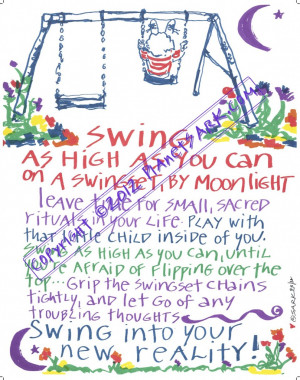 SWING
AS HIGH AS YOU CAN
ON A SWINGSET, BY MOONLIGHT
leave time for small, sacred
rituals in your life. Play with
that little child inside of you.
Swing as high as you can, until
you're afraid of flipping over the
top... Grip the swingset chains
tightly, and let go of any
troubling thoughts
Swing into your
new reality!
COPYRIGHT ©2012 PLANETSARK.COM